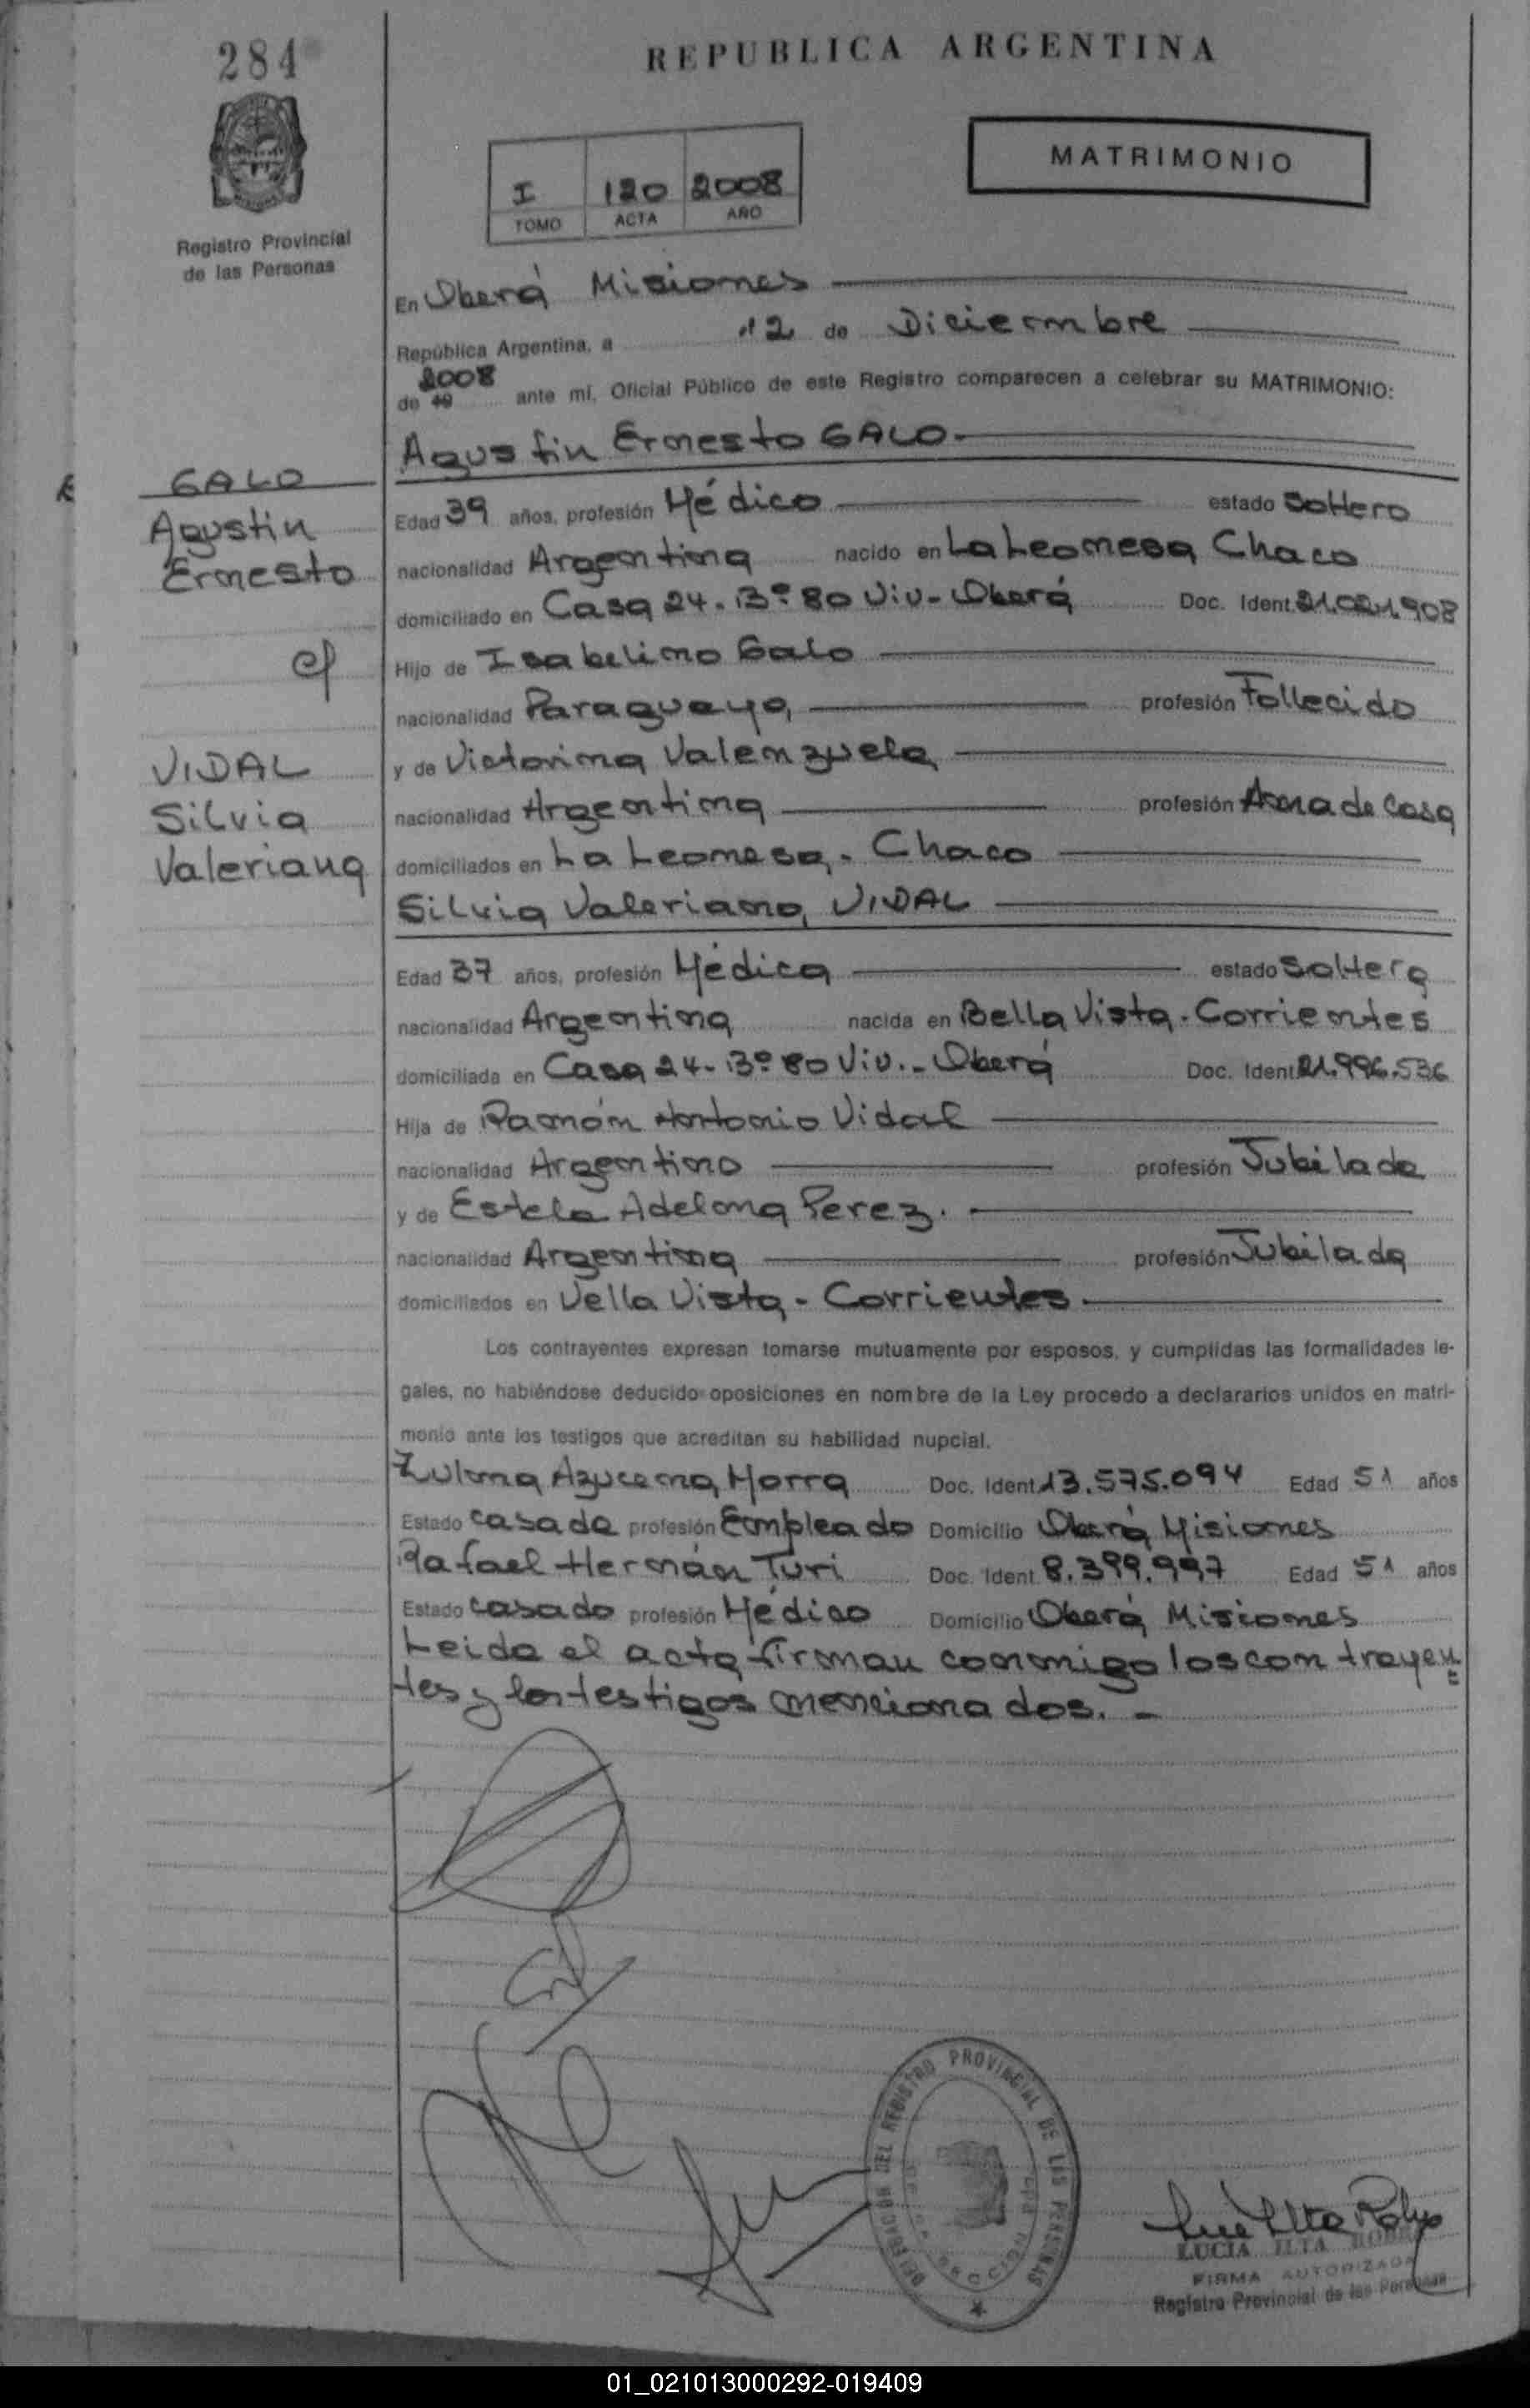 284
REPUBLICA ARGENTINA
I 120 2008
TOMO ACTA AÑO
MATRIMONIO
Registro Provincial
de las Personas
En Oberá Misiones
República Argentina, a 12 de Diciembre
2008
de 19 ante mí, Oficial Público de este Registro comparecen a celebrar su MATRIMONIO:
Agustin Ernesto GALO.
GALO
Agustin
Ernesto
c/
VIDAL
Silvia
Valeriana
Edad 39 años, profesión Médico estado Soltero
nacionalidad Argentina nacido en La Leonesa Chaco
domiciliado en Casa 24. Bº 80 Viv - Oberá Doc. Ident. 21.021.908
Hijo de Isabelino Galo
nacionalidad Paraguaya profesión Fallecido
y de Victorina Valenzuela
nacionalidad Argentina profesión Ama de Casa
domiciliados en La Leonesa. Chaco
Silvia Valeriana VIDAL
Edad 37 años, profesión Médica estado Soltera
nacionalidad Argentina nacida en Bella Vista - Corrientes
domiciliada en Casa 24 - Bº 80 Viv. - Oberá Doc. Ident. 21.996.536
Hija de Ramón Antonio Vidal
nacionalidad Argentino profesión Jubilado
y de Estela Adelona Perez.
nacionalidad Argentina profesión Jubilada
domiciliados en Vella Vista - Corrientes
Los contrayentes expresan tomarse mutuamente por esposos, y cumplidas las formalidades le-
gales, no habiéndose deducido oposiciones en nombre de la Ley procedo a declararlos unidos en matri-
monio ante los testigos que acreditan su habilidad nupcial.
Zulma Azucena Morra Doc. Ident. 13.575.094 Edad 51 años
Estado casada profesión Empleado Domicilio Oberá Misiones
Rafael Hernán Turi Doc. Ident. 8.399.997 Edad 51 años
Estado casado profesión Médico Domicilio Oberá Misiones
Leida el acta firman conmigo los contrayen
tes y los testigos mencionados. -
DELEGACION DEL REGISTRO PROVINCIAL DE LAS PERSONAS
LUCIA ILTA
FIRMA AUTORIZADA
Registro Provincial de las Personas
01_021013000292-019409